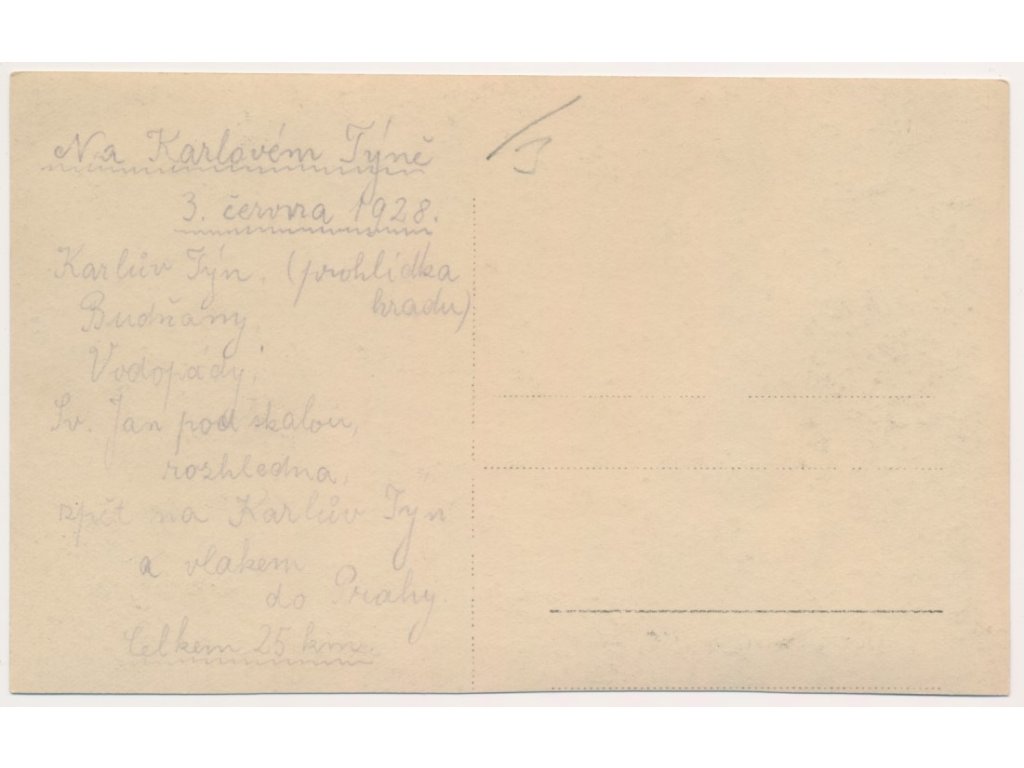 Na Karlovém Týně
3. června 1928.
Karlův Týn. (prohlídka
hradu)
Budňany,
Vodopády,
Sv. Jan pod skalou,
rozhledna,
zpět na Karlův Týn
a vlakem
do Prahy.
Celkem 25 km.